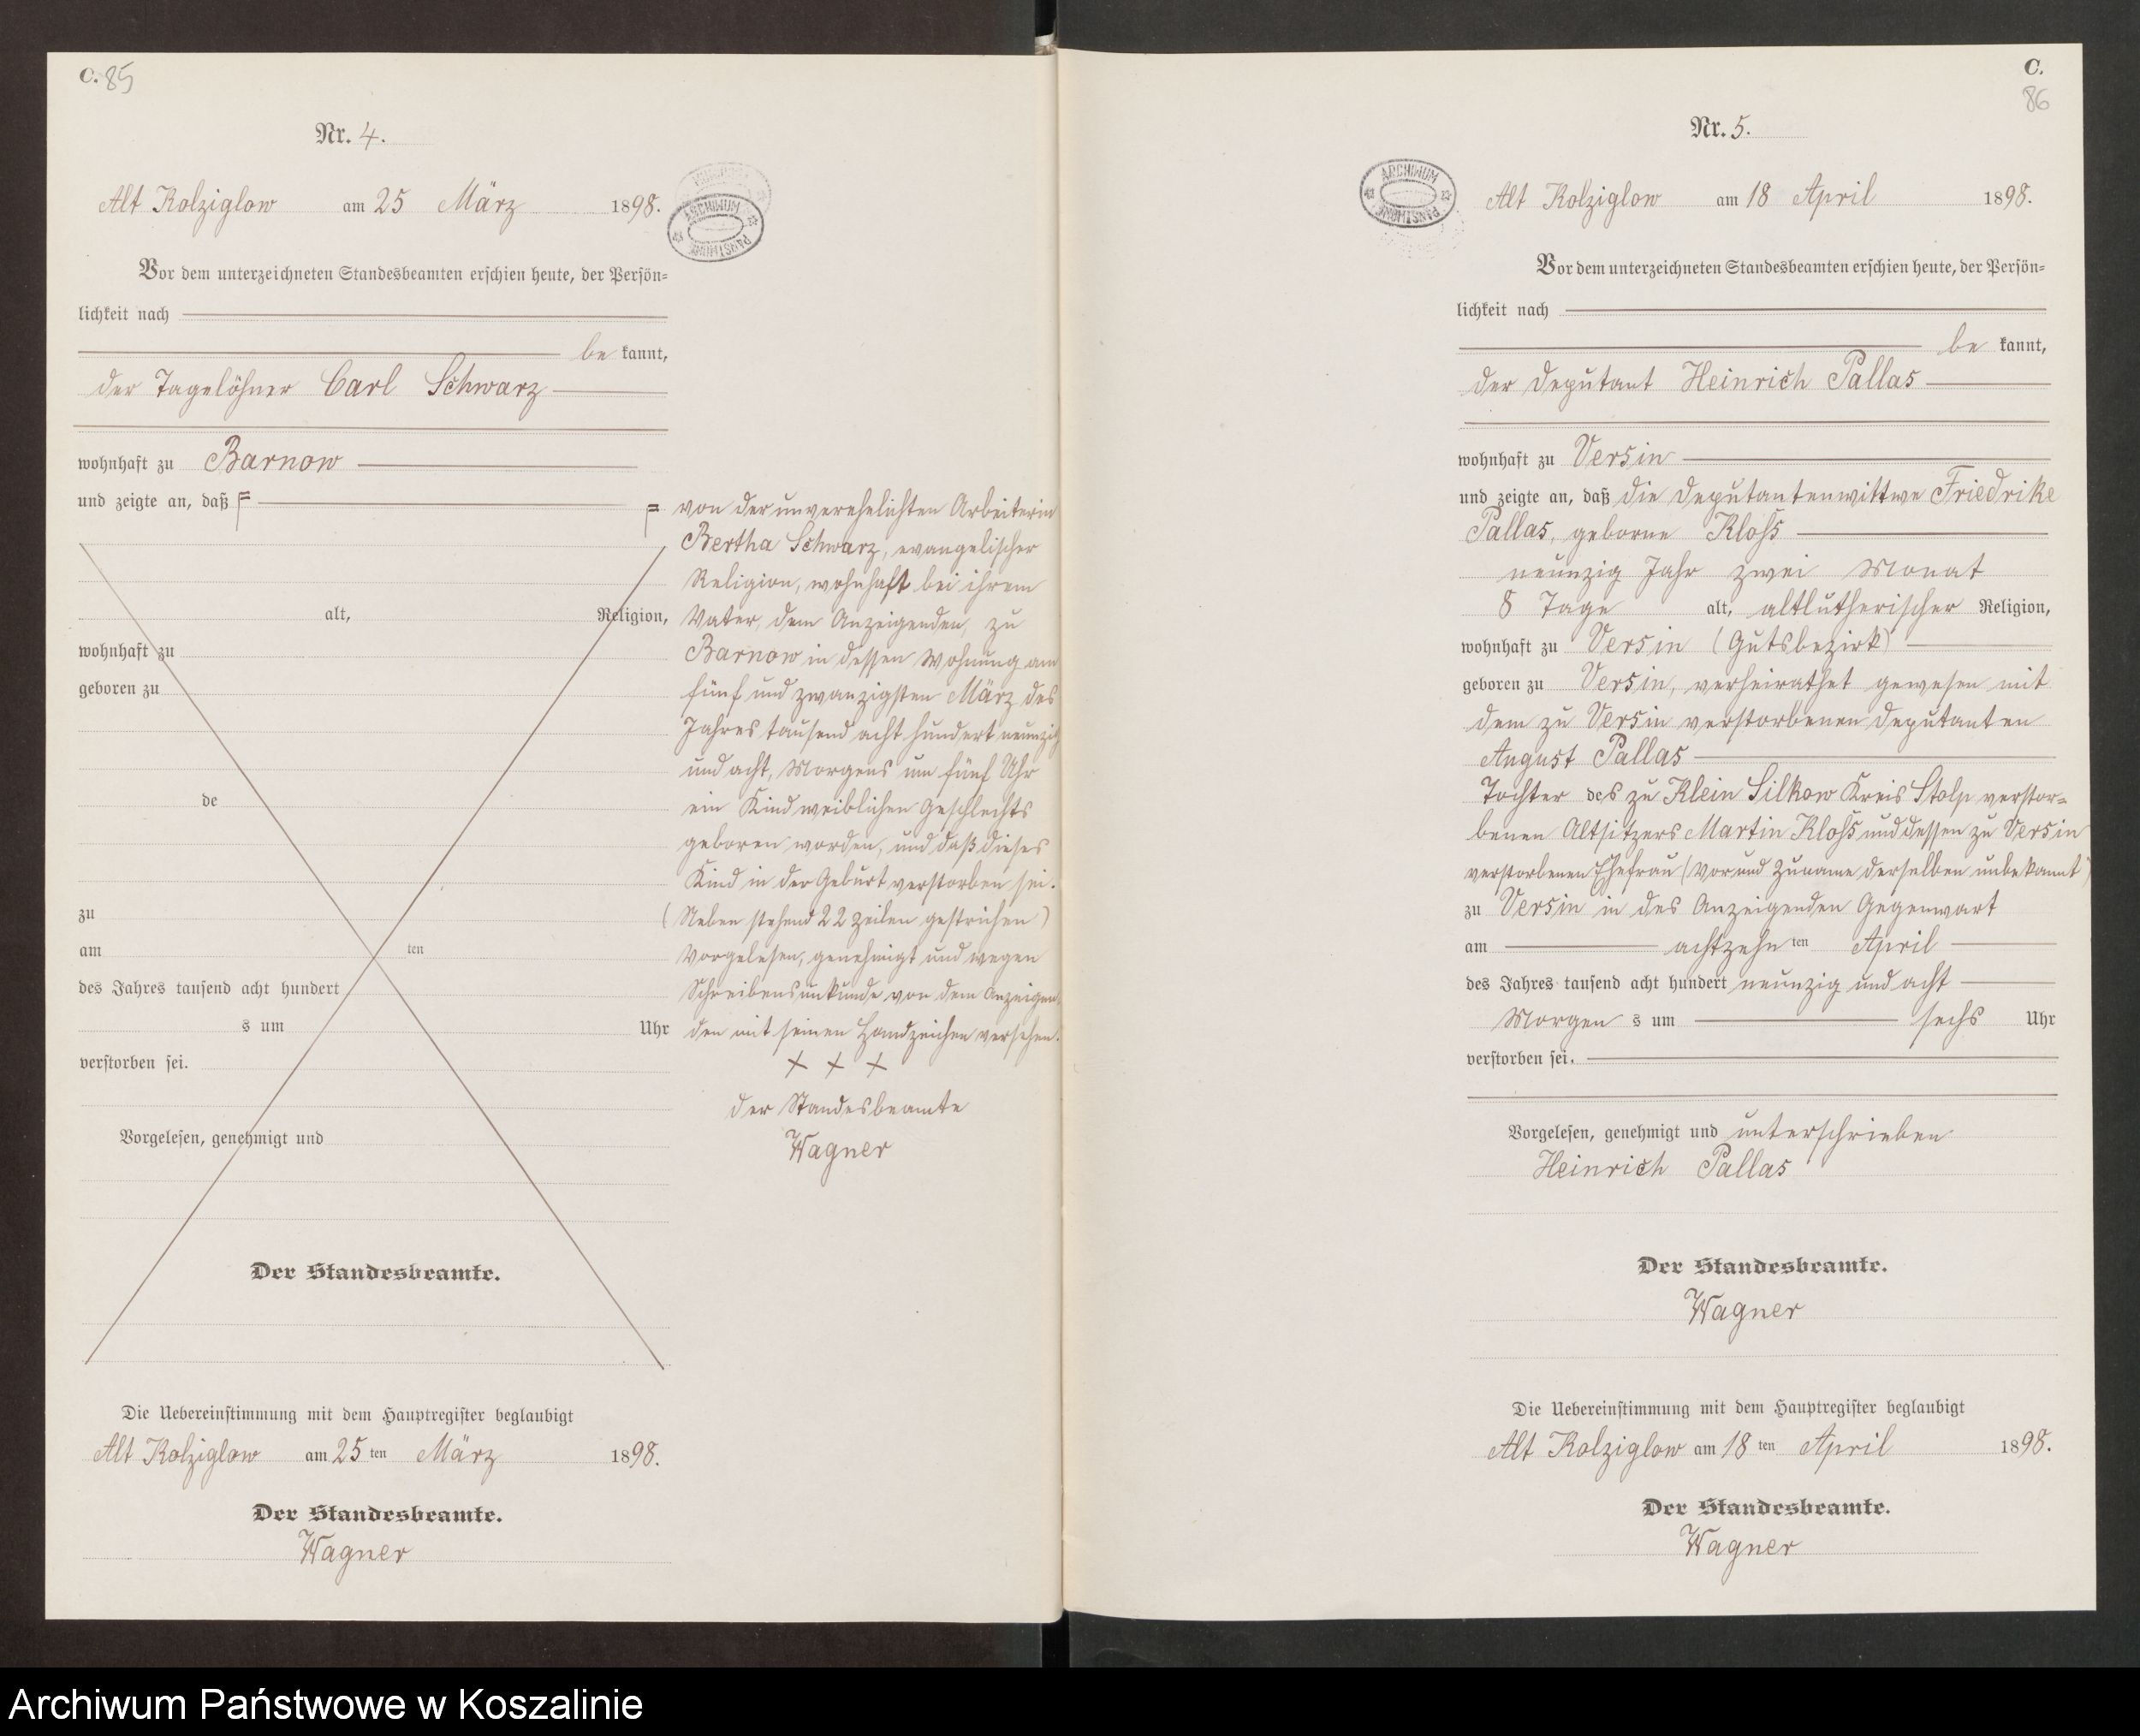 C. 85
Nr. 4.
Alt Kolziglow am 25 März 1898.
ARCHIWUM PAŃSTWOWE
Vor dem unterzeichneten Standesbeamten erschien heute, der Persön-
lichkeit nach
be kannt,
der Tagelöhner Carl Schwarz
wohnhaft zu Barnow
und zeigte an, daß
alt, Religion,
wohnhaft zu
geboren zu
de
zu
am ten
des Jahres tausend acht hundert
s um Uhr
verstorben sei.
Vorgelesen, genehmigt und
Der Standesbeamte.
von der unverehelichten Arbeiterin
Bertha Schwarz, evangelischer
Religion, wohnhaft bei ihrem
Vater, dem Anzeigenden, zu
Barnow in dessen Wohnung am
fünf und zwanzigsten März des
Jahres tausend acht hundert neunzig
und acht, Morgens um fünf Uhr
ein Kind weiblichen Geschlechts
geboren worden, und daß dieses
Kind in der Geburt verstorben sei.
(Neben stehend 22 Zeilen gestrichen)
Vorgelesen, genehmigt und wegen
Schreibensunkunde von dem Anzeigen
den mit seinen Handzeichen versehen.
+ + +
der Standesbeamte
Wagner
Die Uebereinstimmung mit dem Hauptregister beglaubigt
Alt Kolziglow am 25 ten März 1898.
Der Standesbeamte.
Wagner
C.
86
Nr. 5.
ARCHIWUM PAŃSTWOWE
Alt Kolziglow am 18 April 1898.
Vor dem unterzeichneten Standesbeamten erschien heute, der Persön-
lichkeit nach
be kannt,
der Deputant Heinrich Pallas
wohnhaft zu Versin
und zeigte an, daß die Deputantenwittwe Friedrike
Pallas, geborne Kloß
neunzig Jahr zwei Monat
8 Tage alt, altlutherischer Religion,
wohnhaft zu Versin (Gutsbezirk)
geboren zu Versin, verheirathet gewesen mit
dem zu Versin verstorbenen Deputanten
August Pallas
Tochter des zu Klein Silkow Kreis Stolp verstor-
benen Altsitzers Martin Kloß und dessen zu Versin
verstorbenen Ehefrau (Vor und Zuname derselben unbekannt)
zu Versin in des Anzeigenden Gegenwart
am achtzehn ten April
des Jahres tausend acht hundert neunzig und acht
Morgen s um sechs Uhr
verstorben sei.
Vorgelesen, genehmigt und unterschrieben
Heinrich Pallas
Der Standesbeamte.
Wagner
Die Uebereinstimmung mit dem Hauptregister beglaubigt
Alt Kolziglow am 18 ten April 1898.
Der Standesbeamte.
Wagner
Archiwum Państwowe w Koszalinie